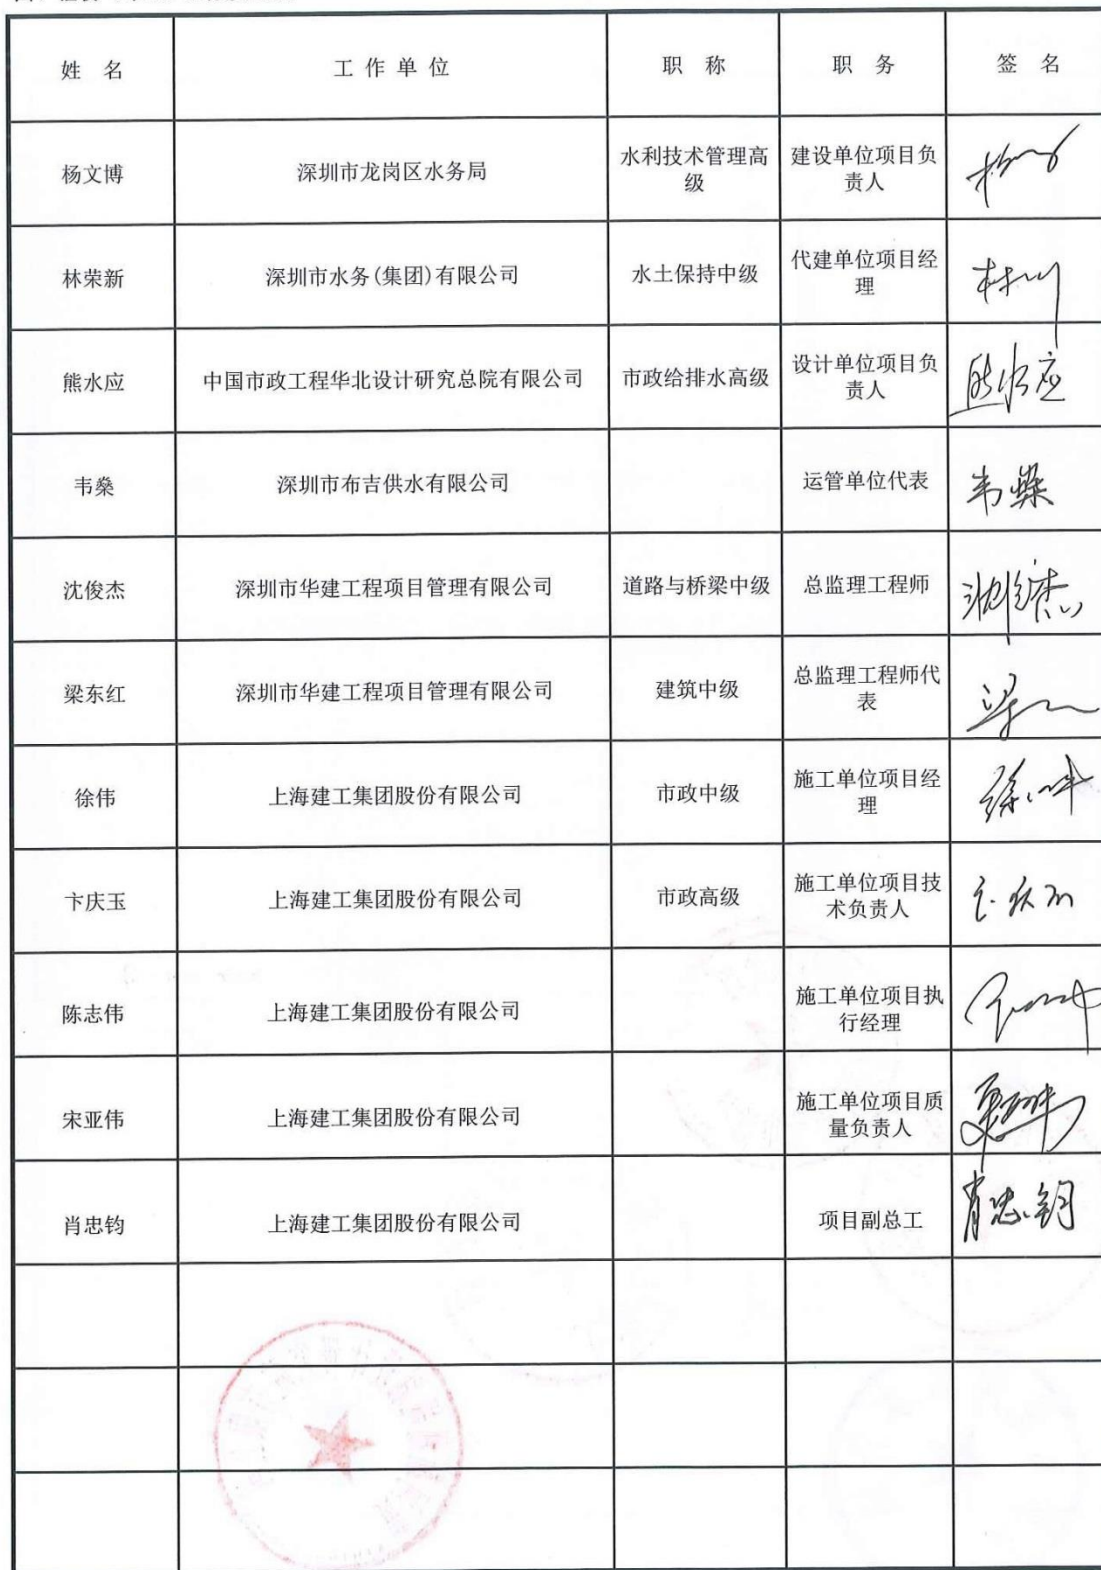 姓 名 工 作 单 位 职 称 职 务 签 名
杨文博 深圳市龙岗区水务局 水利技术管理高 建设单位项目负
级 责人
林荣新 深圳市水务(集团)有限公司 水土保持中级 代建单位项目经
理
熊水应 中国市政工程华北设计研究总院有限公司 市政给排水高级 设计单位项目负 熊水应
责人
韦燊 深圳市布吉供水有限公司 运管单位代表 韦燊
沈俊杰 深圳市华建工程项目管理有限公司 道路与桥梁中级 总监理工程师 沈俊杰
梁东红 深圳市华建工程项目管理有限公司 建筑中级 总监理工程师代
表
徐伟 上海建工集团股份有限公司 市政中级 施工单位项目经
理
卞庆玉 上海建工集团股份有限公司 市政高级 施工单位项目技
术负责人
陈志伟 上海建工集团股份有限公司 施工单位项目执
行经理
宋亚伟 上海建工集团股份有限公司 施工单位项目质
量负责人
肖忠钧 上海建工集团股份有限公司 项目副总工 肖忠钧